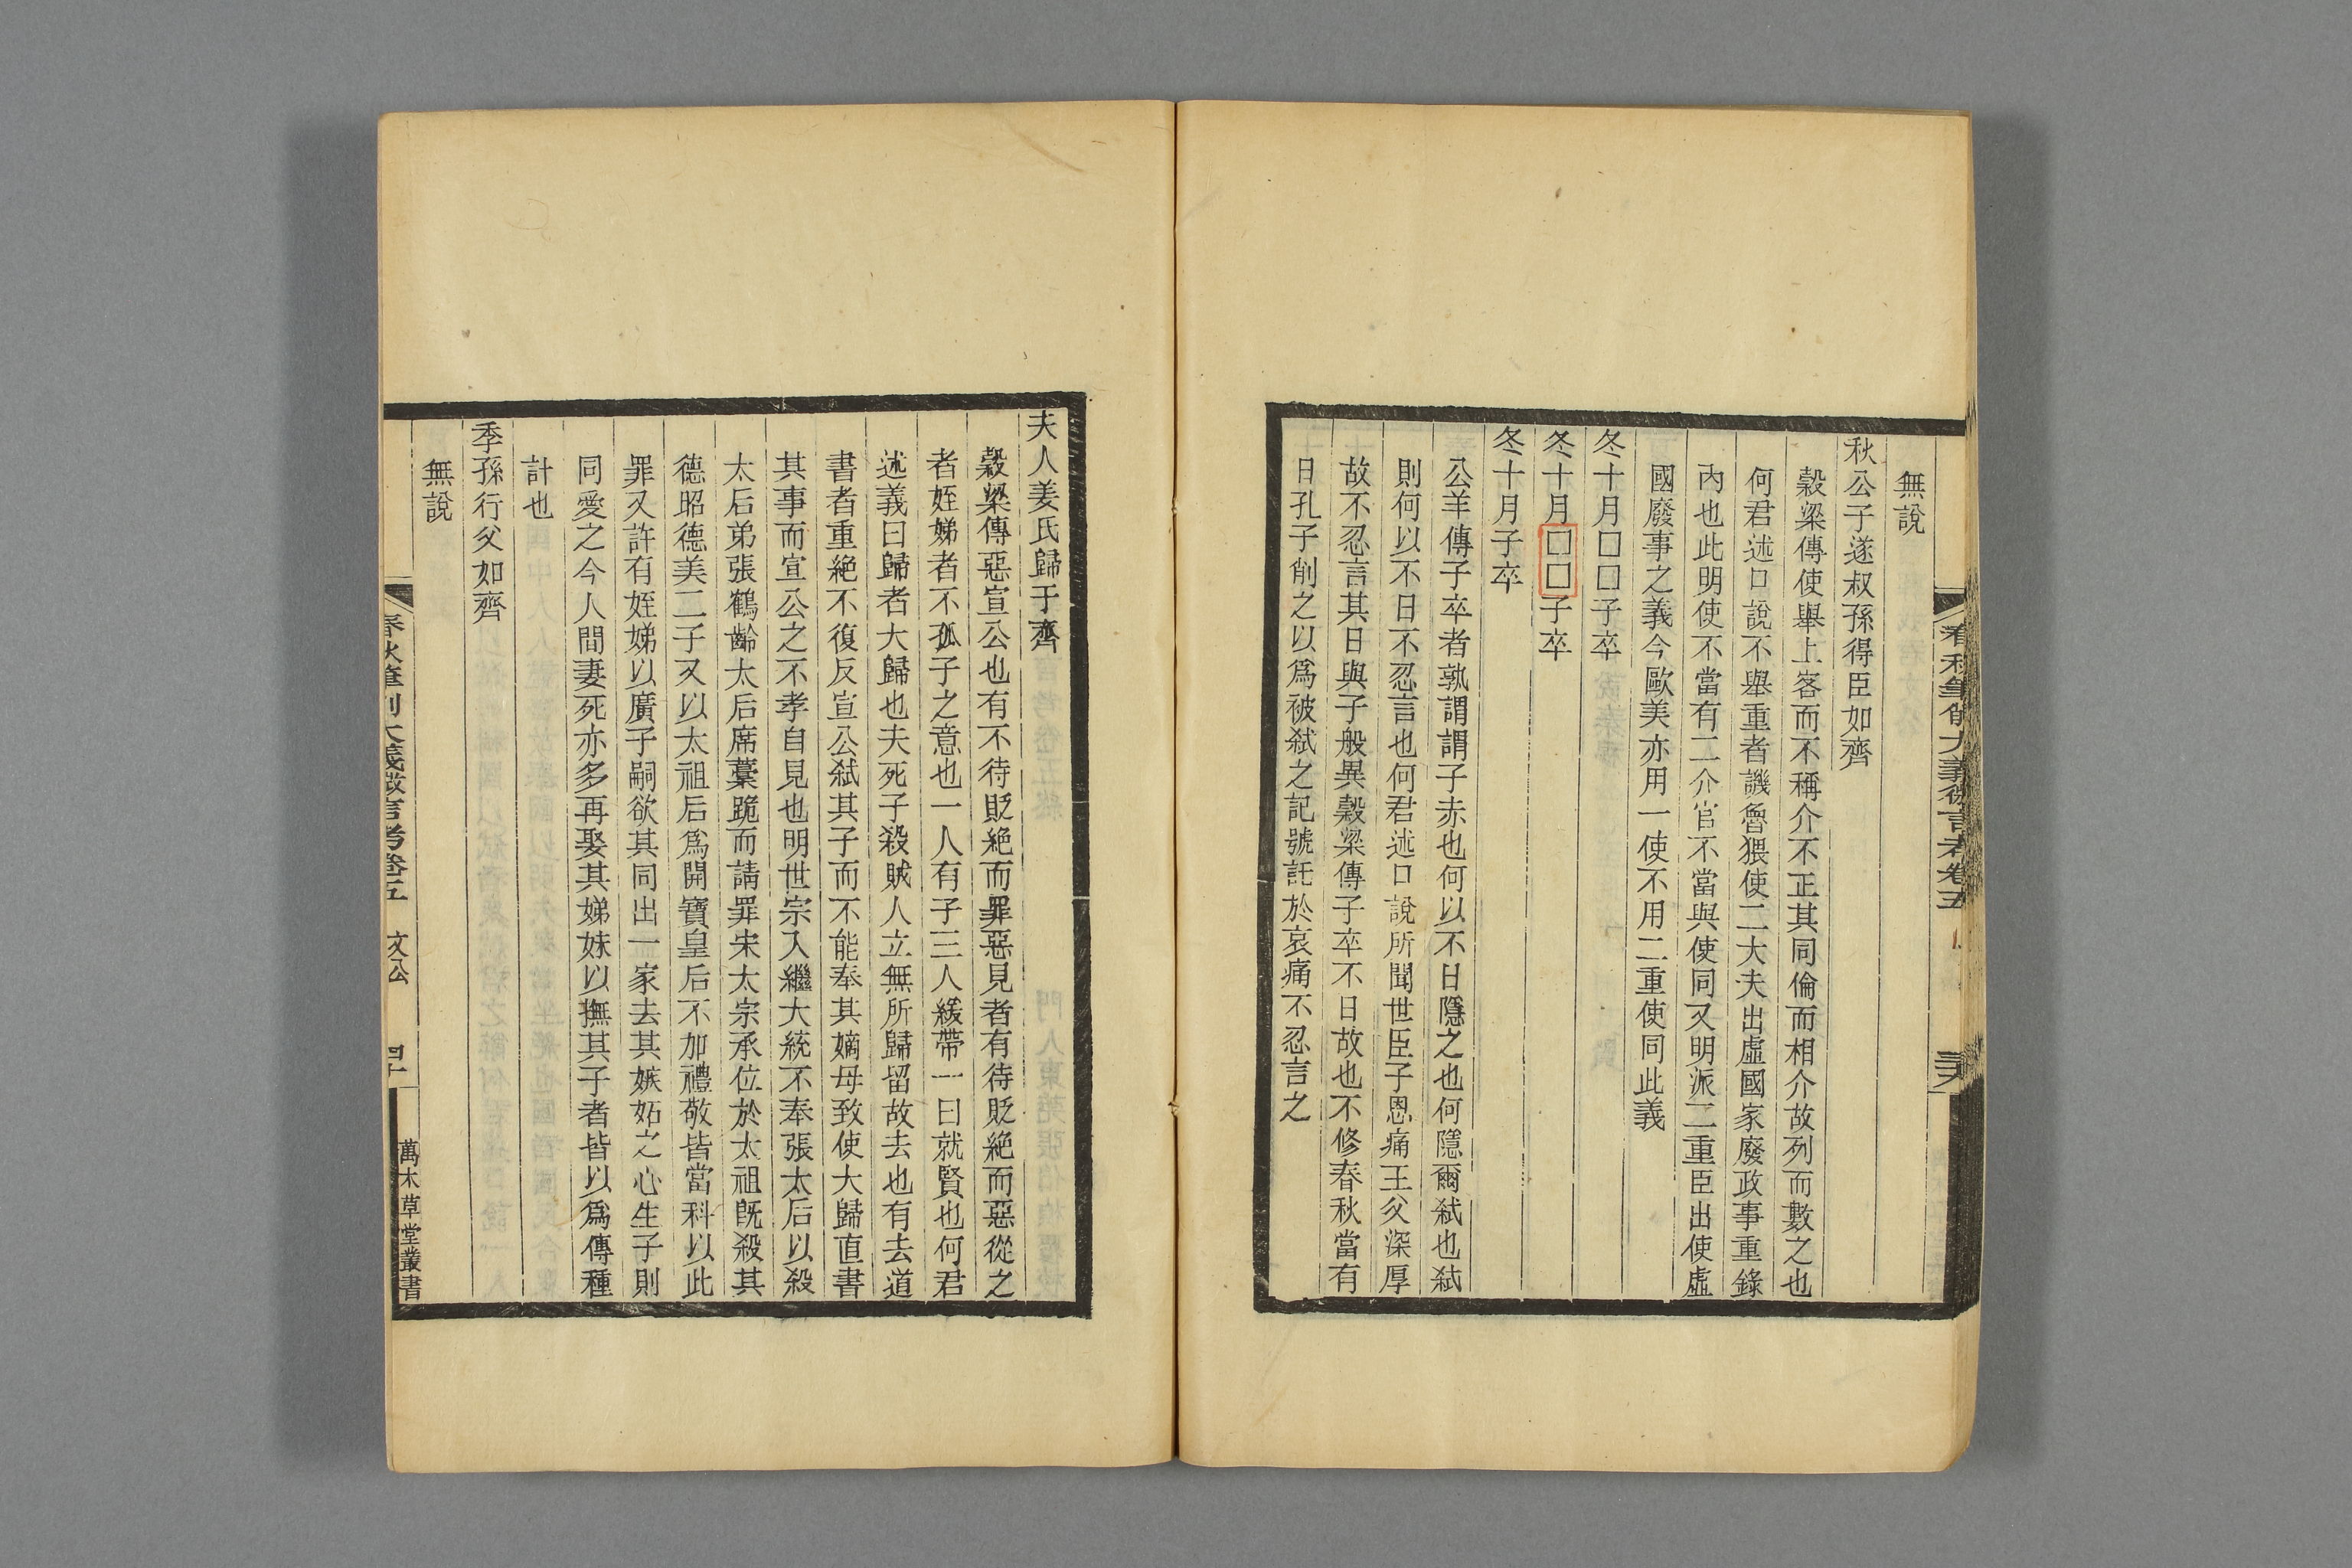 無說
秋公子遂叔孫得臣如齊
穀梁傳使舉上客而不稱介不正其同倫而相介故列而數之也
何君述口說不舉重者譏魯猥使二大夫出虛國家廢政事重錄
內也此明使不當有二介官不當與使同又明派二重臣出使虛
國廢事之義今歐美亦用一使不用二重使同此義
冬十月□□子卒
冬十月□□子卒
冬十月子卒
公羊傳子卒者孰謂謂子赤也何以不日隱之也何隱爾弒也弒
則何以不日不忍言也何君述口說所聞世臣子恩痛王父深厚
故不忍言其日與子般異穀梁傳子卒不日故也不修春秋當有
日孔子削之以爲被弒之記號託於哀痛不忍言之
夫人姜氏歸于齊
穀梁傳惡宣公也有不待貶絕而罪惡見者有待貶絕而惡從之
者姪娣者不孤子之意也一人有子三人緩帶一曰就賢也何君
述義曰歸者大歸也夫死子殺賊人立無所歸留故去也有去道
書者重絕不復反宣公弒其子而不能奉其嫡母致使大歸直書
其事而宣公之不孝自見也明世宗入繼大統不奉張太后以殺
太后弟張鶴齡太后席藁跪而請罪宋太宗承位於太祖既殺其
德昭德美二子又以太祖后爲開寶皇后不加禮敬皆當科以此
罪又許有姪娣以廣子嗣欲其同出一家去其嫉妬之心生子則
同愛之今人間妻死亦多再娶其娣妹以撫其子者皆以爲傳種
計也
季孫行父如齊
無說
春秋筆削大義微言考卷五 文公 四十 萬木草堂叢書